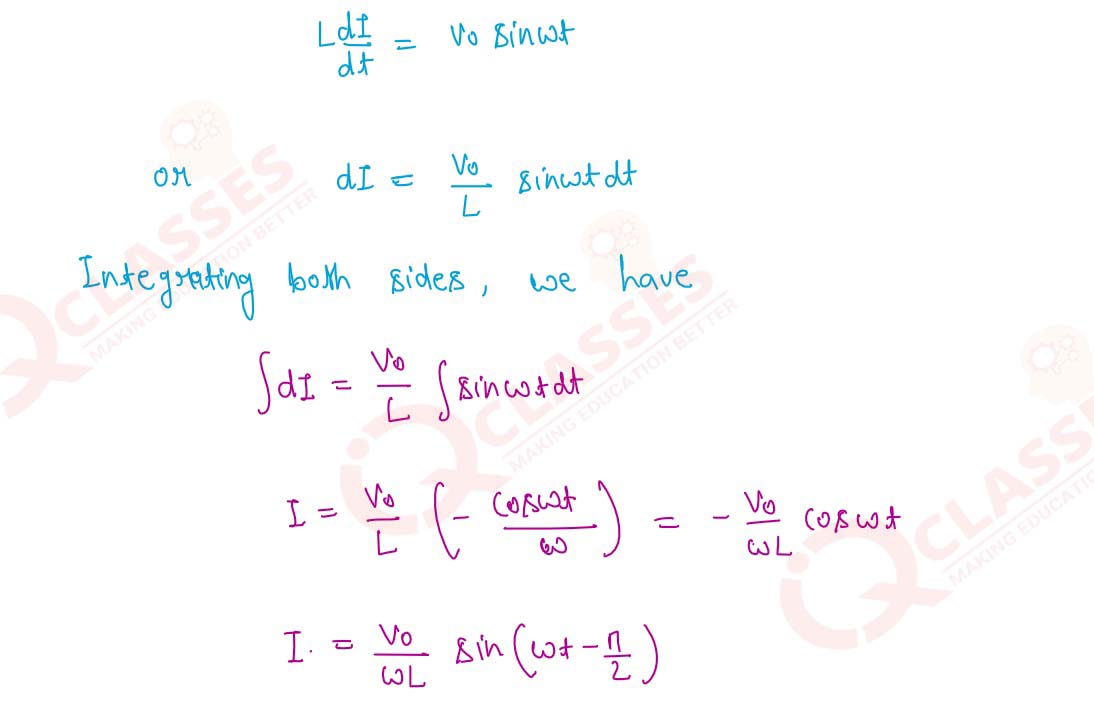 L dI/dt = V0 sinωt
or dI = V0/L sinωt dt
Integrating both sides, we have
∫dI = V0/L ∫sinωt dt
I = V0/L (- cosωt/ω) = - V0/ωL cosωt
I. = V0/ωL sin(ωt - π/2)
CLASSES
MAKING EDUCATION BETTER
CLASSES
MAKING EDUCATION BETTER
CLASSES
MAKING EDUCATION